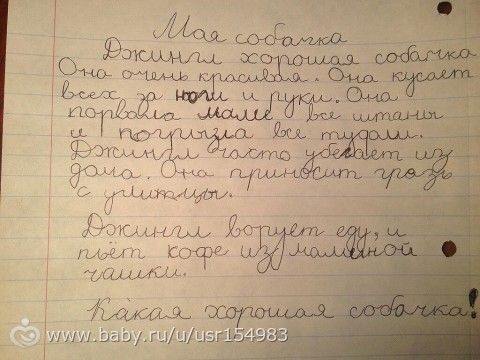 Моя собачка
Джингл хорошая собачка
Она очень красивая. Она кусает
всех за ноги и руки. Она
порвала маме все штаны
и погрызла все туфли.
Джингл часто убегает из
дома. Она приносит грязь
с улицы.
Джингл ворует еду, и
пьёт кофе из маминой
чашки.
Какая хорошая собачка!
www.baby.ru/u/usr154983